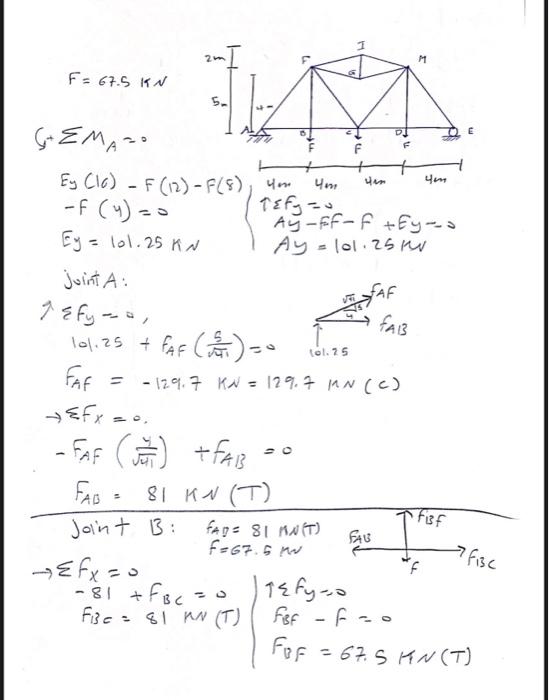 2m I
F = 67.5 KN
5m
4
F I M
G
A B C D E
F F F
4m 4m 4m 4m
↺+ ΣMA = 0
Ey(16) - F(12) - F(8)
- F(4) = 0
Ey = 101.25 KN
↑Σfy = 0
Ay - F - F - F + Ey = 0
Ay = 101.25 KN
joint A:
↑Σfy = 0,
101.25 + fAF (5/√41) = 0
FAF = -129.7 KN = 129.7 KN (C)
√41 5 4
fAF
fAB
101.25
→Σfx = 0,
- FAF (4/√41) + fAB = 0
FAB = 81 KN (T)
Joint B: fAB = 81 KN(T)
F = 67.5 KN
fBF
FAB
fBC
F
→Σfx = 0
-81 + FBC = 0
FBC = 81 KN (T)
↑Σfy = 0
fBF - F = 0
FBF = 67.5 KN(T)